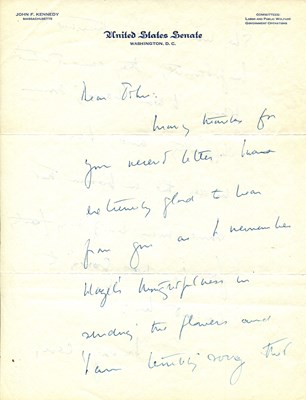 JOHN F. KENNEDY
MASSACHUSETTS
COMMITTEES:
LABOR AND PUBLIC WELFARE
GOVERNMENT OPERATIONS
United States Senate
WASHINGTON, D. C.
Dear John:
Many thanks for
your recent letter. I was
extremely glad to hear
from you as I remember
thoughtfulness in
sending the flowers and
I am terribly sorry that